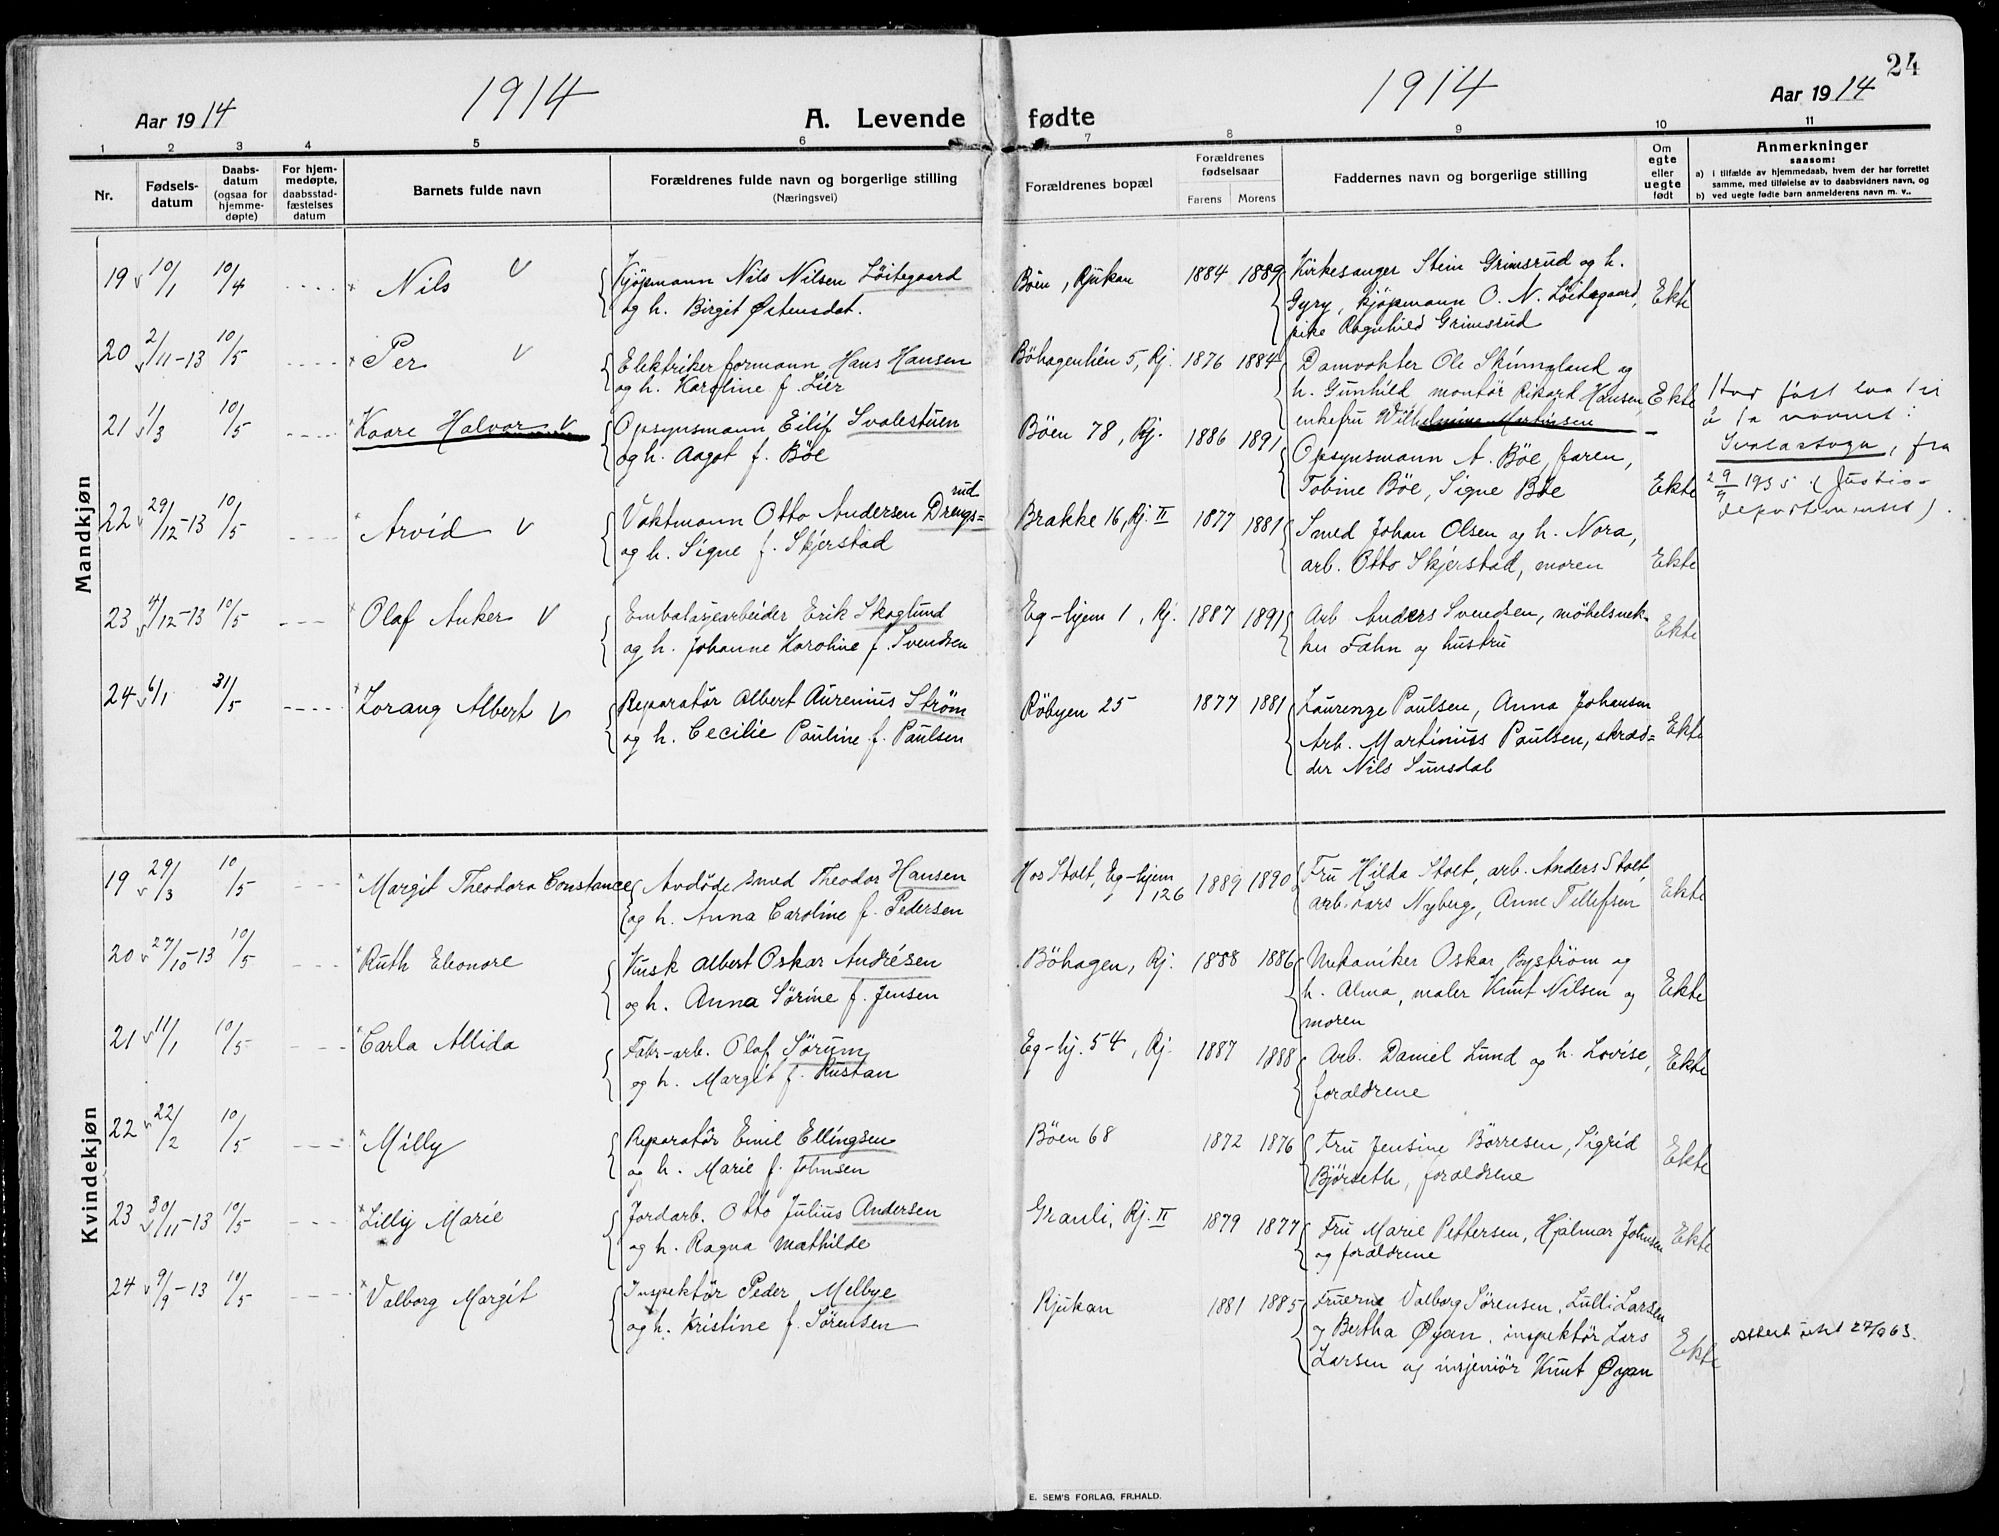 24
Aar 1914
1914
A. Levende
fødte
1914
Aar 1914
1 2 3 4 5 6 7 8 9 10 11
Nr.
Fødsels-
datum
Daabs-
datum
(ogsaa for
hjemme-
døpte)
For hjem-
medøpte,
daabsstad-
fæstelses
datum
Barnets fulde navn
Forældrenes fulde navn og borgerlige stilling
(Næringsvei)
Forældrenes bopæl
Forældrenes
fødselsaar
Farens Morens
Faddernes navn og borgerlige stilling
Om
egte
eller
uegte
født
Anmerkninger
saasom:
a) i tilfælde av hjemmedaab, hvem der har forrettet
samme, med tilføielse av to daabsvidners navn, og
b) ved uegte fødte barn anmelderens navn m. v..
Mandkjøn
19 10/1 10/4 Nils Kjøpmann Nils Nilsen Löitegaard
og h. Birgit Østensdat.
Böen, Rjukan 1884 1889 Kirkesanger Stein Grimsrud og h.
Gyry, kjøpmann O. N. Löitegaard,
pike Ragnhild Grimsrud
Ekte
20 2/11-13 10/5 Per Elektriker formann Hans Hansen
og h. Karoline f. Lier
Böhagenhien 5, Rj. 1876 1884 Damvokter Ole Skinnyland og
h. Gunhild montör Rikard Hansen,
enkefru Wilhelmine Martinsen
Ekte
21 1/3 10/5 Kaare Halvor Opsynsmann Eilif Svalestuen
og h. Aagot f. Böe
Böen 78, Rj. 1886 1891 Opsynsmann A. Böe, faren,
Tobine Böe, Signe Böe
Ekte
Har fått lov til
å ta navnet:
Svalastoga, fra
29/9 1935 (Justis-
departementet).
22 29/12-13 10/5 Arvid Vaktmann Otto Andersen Drengs=
rud
og h. Signe f. Skjerstad
Brakke 16, Rj. II 1877 1881 Smed Johan Olsen og h. Nora,
arb. Otto Skjerstad, moren
Ekte
23 4/12-13 10/5 Olaf Anker Embalasjearbeider Erik Skoglund
og h. Johanne Karoline f. Svendsen
Eg-hjem 1, Rj. 1887 1891 Arb. Anders Svendsen, møbelsnek-
ker Fahn og hustru
Ekte
24 6/1 31/5 Lorang Albert Reparatør Albert Aurenius Strøm
og h. Cecilie Pauline f. Paulsen
Röbyen 25 1877 1881 Laurenze Paulsen, Anna Johansen
Arb. Martinius Paulsen, skræd=
der Nils Sunsdal
Ekte
Kvindekjøn
19 29/3 10/5 Margit Theodora Constance Avdöde smed Theodor Hansen
og h. Anna Caroline f. Pedersen
Hos Stolt, Eg-hjem
126
1889 1890 Fru Hilda Stolt, arb. Anders Stolt,
arb. Lars Nyberg, Anne Tellefsen
Ekte
20 27/10-13 10/5 Ruth Eleonore Kusk Albert Oskar Andrésen
og h. Anna Sörine f. Jensen
Böhagen, Rj. 1888 1886 Mekaniker Oskar Byström og
h. Alma, maler Knut Nilsen og
moren
Ekte
21 11/1 10/5 Carla Allida Fabr-arb. Olaf Sörum
og h. Margit f. Rustan
Eg-hj. 54, Rj. 1887 1888 Arb. Daniel Lund og h. Lovise,
foraldrene
Ekte
22 22/2 10/5 Milly Reparatör Emil Ellingsen
og h. Marie f. Johnsen
Böen 68 1872 1876 Fru Jensine Börresen, Sigrid
Björseth, foraldrene
Ekte
23 30/11-13 10/5 Lilly Marie Jordarb. Otto Julius Andersen
og h. Ragna Mathilde
Grauli, Rj. II 1879 1877 Fru Marie Pettersen, Hjalmar Johnsen
og foraldrene
Ekte
24 9/9-13 10/5 Valborg Margit Inspektör Peder Melbye
og h. Kristine f. Sörensen
Rjukan 1881 1885 Fruerne Valborg Sörensen, Lulli Larsen
og Bertha Øyan, inspektör Lars
Larsen og ingeniör Knut Øyan
Ekte
27/9 63.
E. SEM'S FORLAG, FR.HALD.